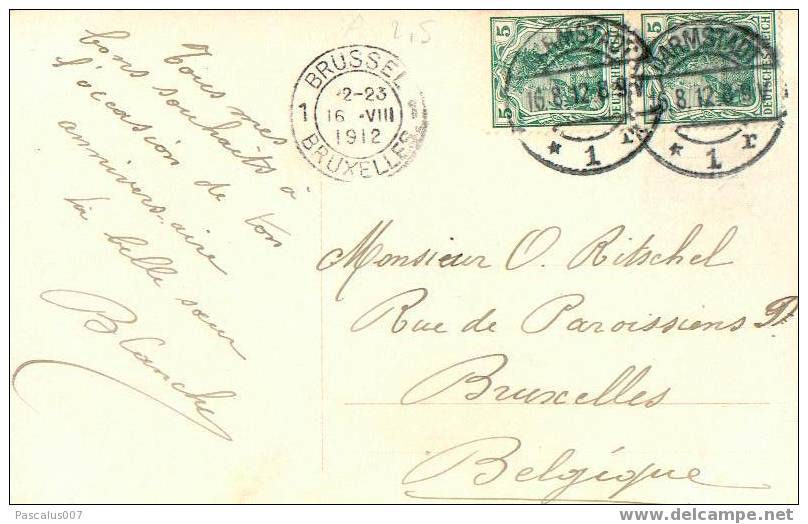 2,5
BRUSSEL
22-23
1
16 -VIII
1912
BRUXELLES
5
5
DEUTSCHES REICH
DARMSTADT
16.8.12.8-9
* 1 r
DARMSTADT
8.12.8-9
* 1 r
Tous mes
bons souhaits à
l'occasion de ton
annivers-aire
ta belle sœur
Blanche
Monsieur O. Ritschel
Rue de Paroissiens
Bruxelles
Belgique
Pascalus007
www.delcampe.net